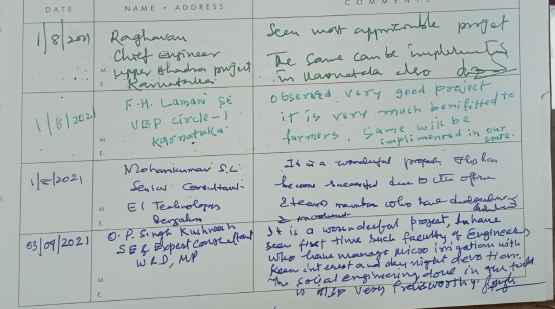 DATE
NAME • ADDRESS
COMMENTS
1/8/2021
Raghavan
Chief Engineer
Upper Bhadra project
Karnataka
Seen most project
The same can be
in Karnataka also
M
E
1/8/2021
F.H. Lamani SE
VBP circle-1
Karnataka
observed very good project
it is very much benifitted to
farmers. Same will be
implimented in our
state.
M
E
1/8/2021
Mohankumar S.L.
Senior Consultant
EI Technologies
It is a wonderful
become successful due to the
team who have
M
E
03/09/2021
O.P. Singh Kushwah
SE & Expert Consultant
WRD, MP
It is a wounderful project, I have
seen first time such faculty of Engineers
who have manage micro irrigation with
keen interest and day night devotion.
The social engineering done in the
is also very
M
E